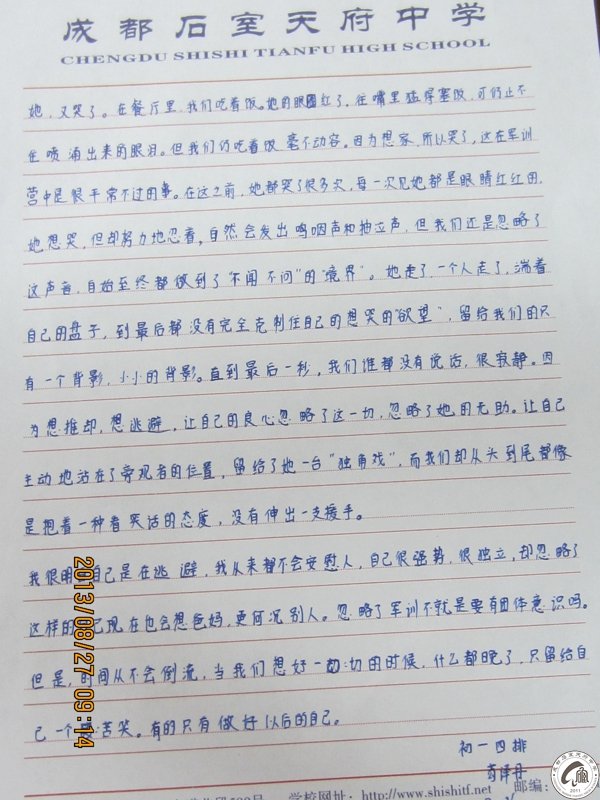 成都石室天府中学
CHENGDU SHISHI TIANFU HIGH SCHOOL
她，又哭了。在餐厅里，我们吃着饭。她的眼圈红了，往嘴里猛得塞饭，可仍止不
住喷涌出来的眼泪。但我们仍吃着饭，毫不动容。因为想家，所以哭了，这在军训
营中是很平常不过的事。在这之前，她都哭了很多次，每一次见她都是眼睛红红的，
她想哭，但却努力地忍着，自然会发出呜咽声和抽泣声，但我们还是忽略了
这声音，自始至终都做到了“不闻不问”的“境界”。她走了，一个人走了，端着
自己的盘子，到最后都没有完全克制住自己的想哭的“欲望”，留给我们的只
有一个背影，小小的背影。直到最后一秒，我们谁都没有说话，很寂静。因
为想推却，想逃避，让自己的良心忽略了这一切，忽略了她的无助。让自己
主动地站在了旁观者的位置，留给了她一台“独角戏”，而我们却从头到尾都像
是抱着一种看笑话的态度，没有伸出一支援手。
我很明 自己是在逃避，我从来都不会安慰人，自己很强势，很独立，却忽略了
这样的 己现在也会想爸妈，更何况别人。忽略了军训不就是要有团体意识吗。
但是，时间从不会倒流，当我们想好一切的时候，什么都晚了，只留给自
己一个 苦笑。有的只有做好以后的自己。
初一四排
2013/08/27 09:14
学校网址：http://www.shishitf.net
邮编：
2011